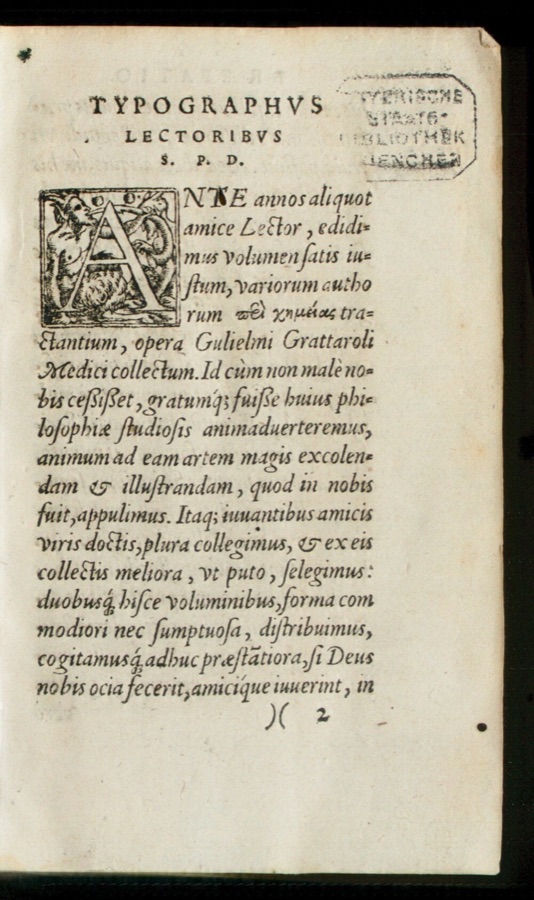 TYPOGRAPHVS
LECTORIBVS
S. P. D.
BAYERISCHE
STAATS-
BIBLIOTHEK
MUENCHEN
ANTE annos aliquot
amice Lector, edidi=
mus volumen ſatis iu=
ſtum, variorum autho
rum πεὶ χημείας tra=
ctantium, opera Gulielmi Grattaroli
Medici collectum. Id cùm non malè no=
bis ceſſiſſet, gratumq; fuiſſe huius phi=
loſophiæ ſtudioſis animaduerteremus,
animum ad eam artem magis excolen=
dam & illuſtrandam, quod in nobis
fuit, appulimus. Itaq; iuuantibus amicis
viris doctis, plura collegimus, & ex eis
collectis meliora, vt puto, ſelegimus:
duobusq́; hiſce voluminibus, forma com
modiori nec ſumptuoſa, diſtribuimus,
cogitamusq́; adhuc præſtātiora, ſi Deus
nobis ocia fecerit, amicíque iuuerint, in
)( 2